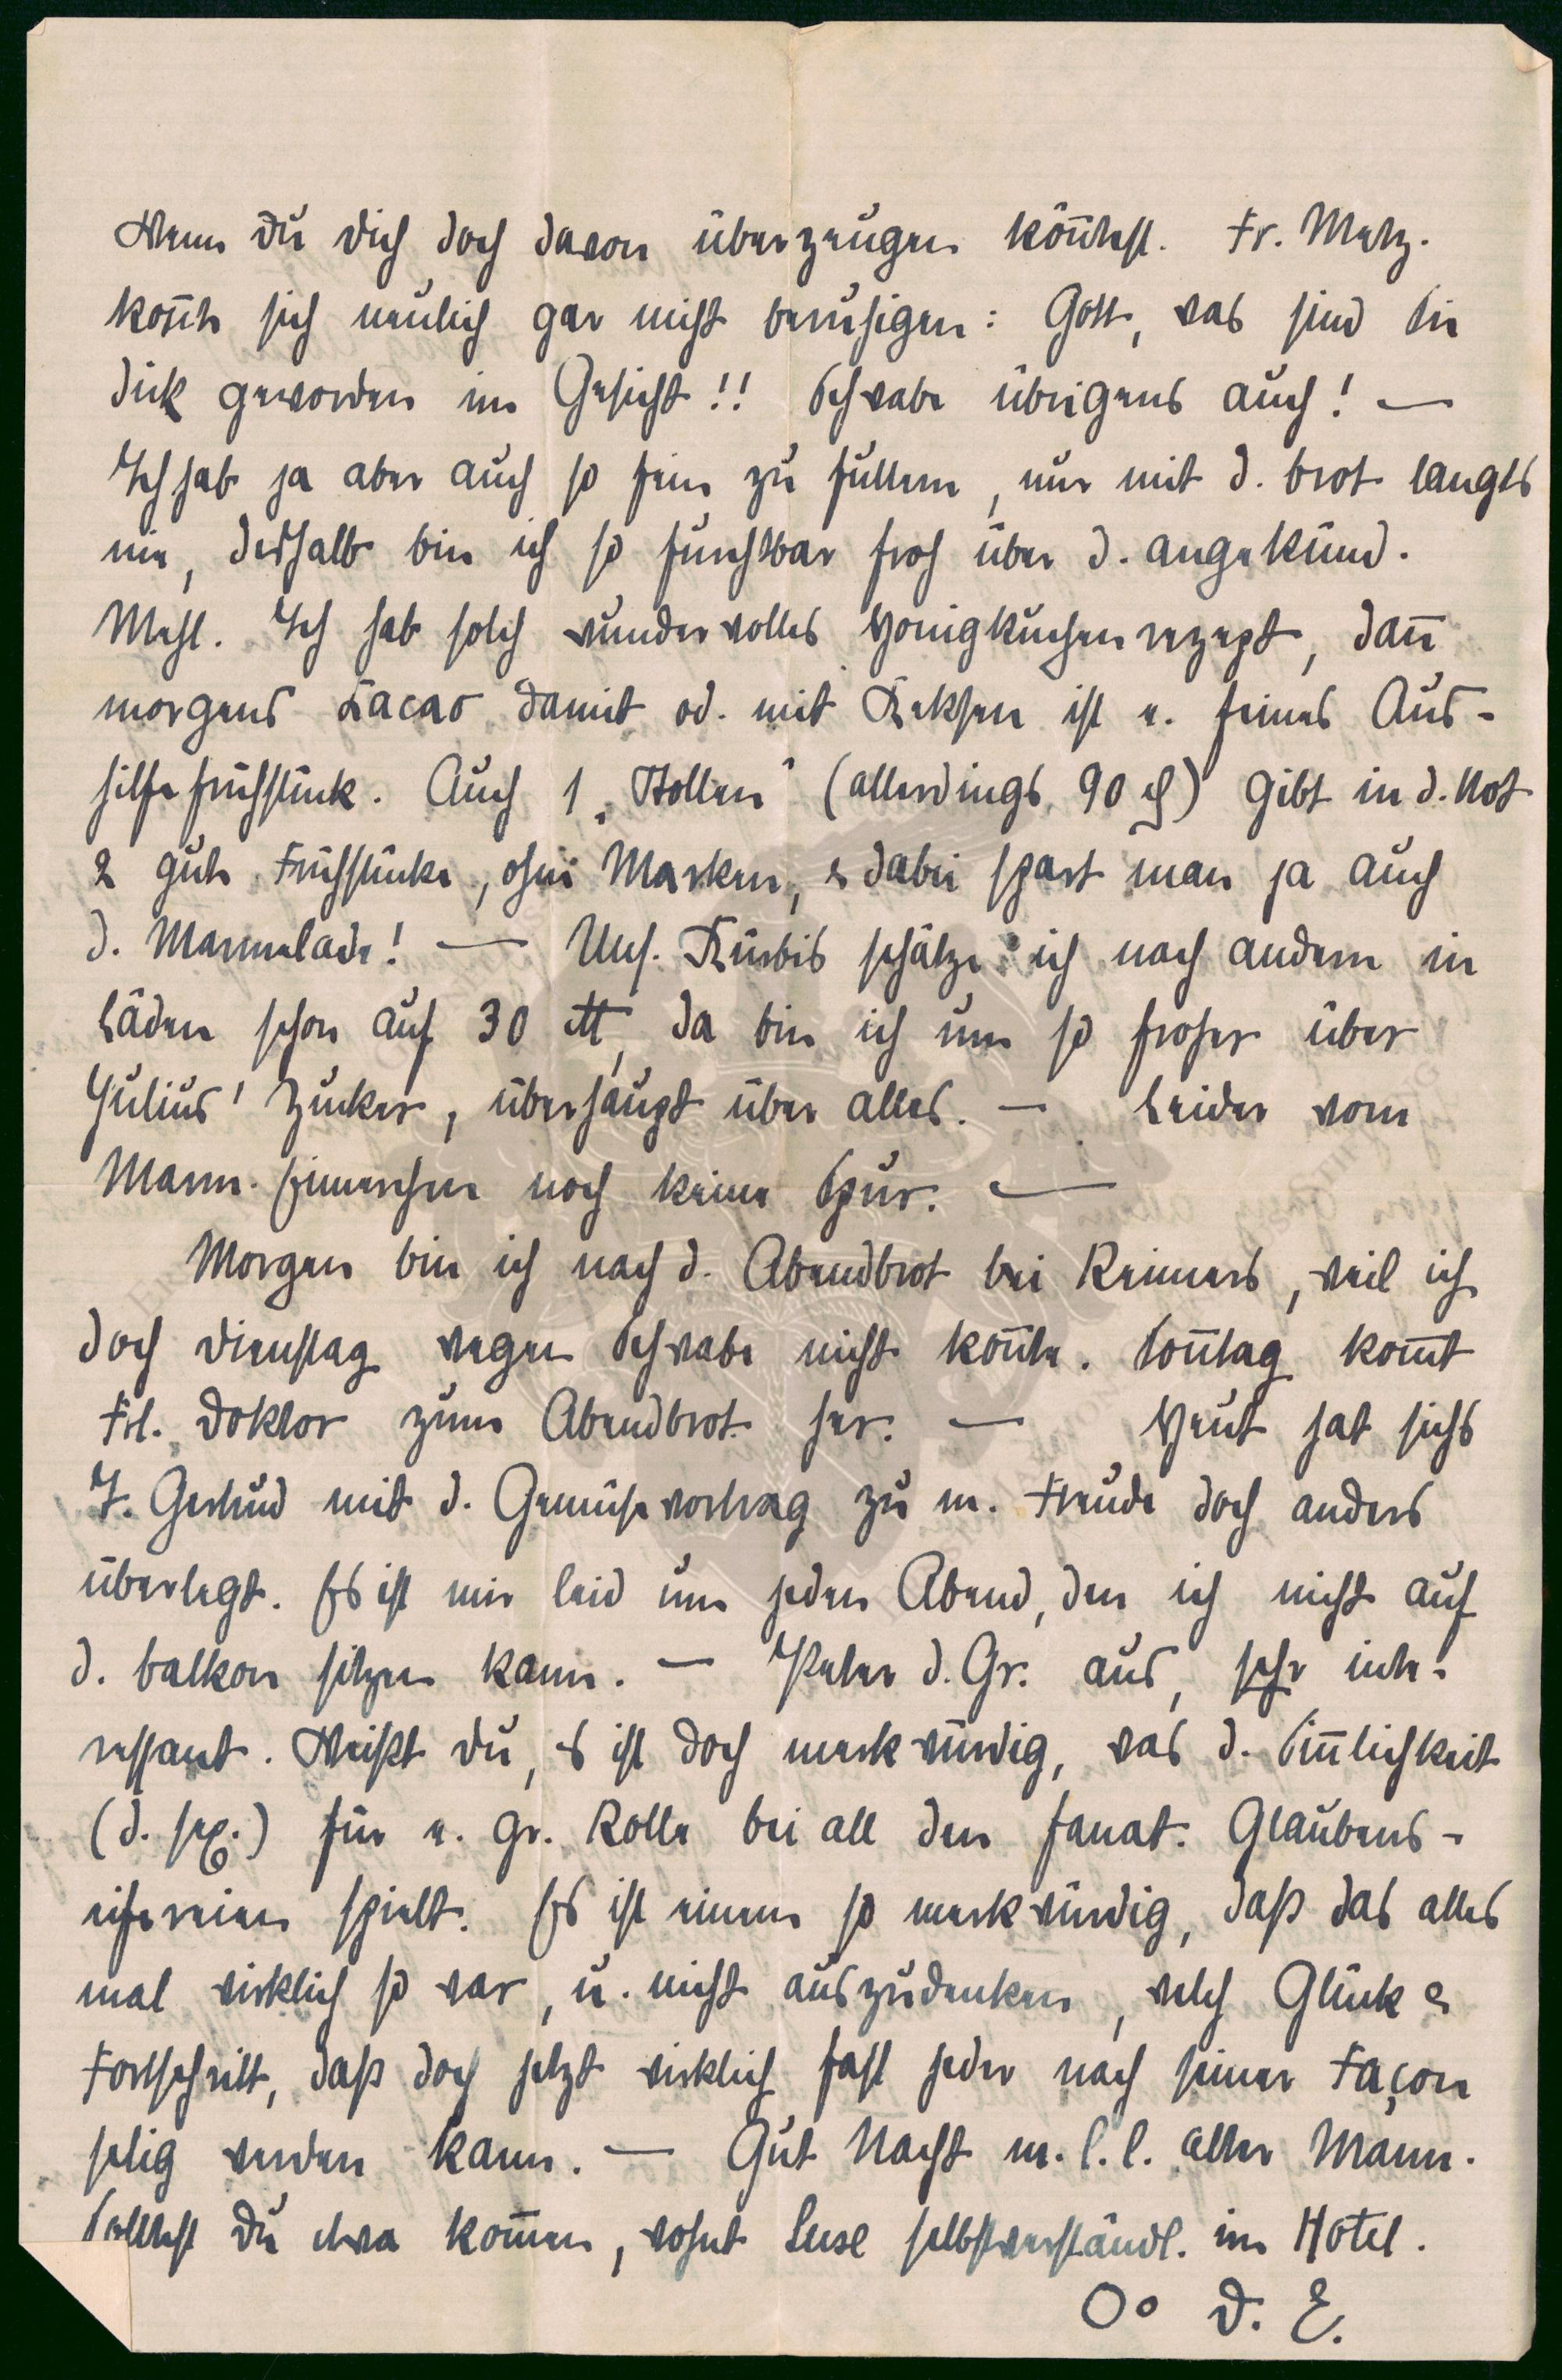 Wenn Du Dich doch davon überzeugen kön̄test. Fr. Metz.
kon̄te sich neulich gar nicht beruhigen: Gott, was sind Sie
dick geworden im Gesicht!! Schwabe übrigens auch! —
Ich hab ja aber auch so fein zu futtern, nur mit d. Brot langts
nie, deshalb bin ich so furchtbar froh über d. angekünd.
Mehl. Ich hab solch wundervolles Honigkuchenrezept, dan̄
morgens Kacao damit od. mit Keksen ist e. feines Aus-
hilfefrühstück. Auch 1 „Stollen“ (allerdings 90 ₰) gibt in d. Not
2 gute Frühstücke, ohne Marken, & dabei spart man ja auch
d. Marmelade! — Uns. Kürbis schätze ich nach andern in
Läden schon auf 30 M, da bin ich um so froher über
Julius' Zucker, überhaupt über alles. — Leider vom
Mann. Eimerchen noch keine Spur. —
Morgen bin ich nach d. Abendbrot bei Reimers, weil ich
doch Dienstag wegen Schwabe nicht kon̄te. Son̄tag kom̄t
Frl. Doktor zum Abendbrot her. — Heut hat sichs
T. Gertrud mit d. Gemüsevortrag zu m. Freude doch anders
überlegt. Es ist mir leid um jeden Abend, den ich nicht auf
d. Balkon sitzen kann. — Peter d. Gr. aus, sehr inte-
ressant. Weißt Du, es ist doch merkwürdig, was d. Sin̄lichkeit
(d. sex.) für e. gr. Rolle bei all den fanat. Glaubens-
eifereien spielt. Es ist einem so merkwürdig, daß das alles
mal wirklich so war, u. nicht auszudenken, welch Glück &
Fortschritt, daß doch jetzt wirklich fast jeder nach seiner Façon
selig werden kann. — Gut Nacht m. l. l. alter Mann.
Solltest Du etwa kom̄en, wohnt Luse selbstverständl. im Hotel.
Oo D. E.